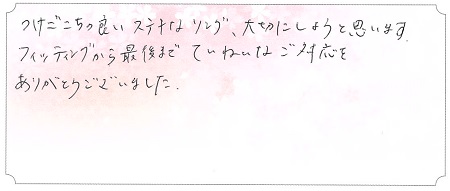 つけごこちの良い ステキな リング、大切にしようと思います.
フィッティングから最後まで ていねいな ご対応を
ありがとうございました.